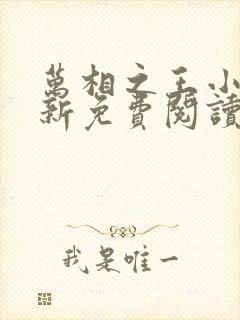 萬相之王小
新免費閱讀
我是唯一